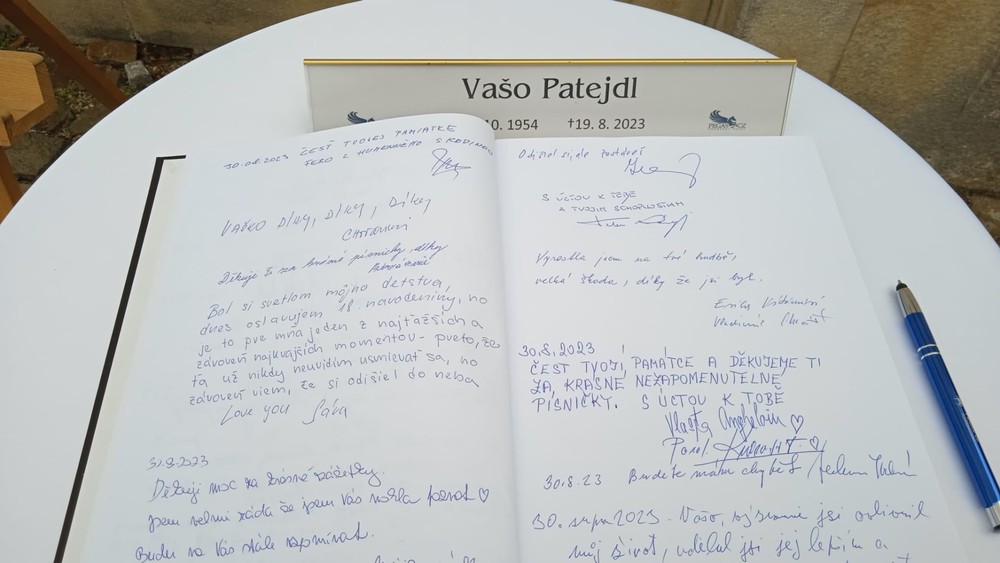 Vašo Patejdl
10. 1954 †19. 8. 2023
30.08.2023 ČESŤ TVOJEJ PAMIATKE
FERO Z HUMENNÉHO S RODINOU
VAŠKO DÍKY, DÍKY, DÍKY
Děkuji Ti za krásné písničky, díky
Bol si svetlom môjho detstva,
dnes oslavujem 18. narodeniny, no
je to pre mňa jeden z najťažších a
zároveň najkrajších momentov - preto, že
ťa už nikdy neuvidím usmievať sa, no
zároveň viem, že si odišiel do neba
Love you Sára
31.8.2023
Děkuji moc za krásné zážitky.
Jsem velmi ráda že jsem Vás mohla poznat ♡
Budu na Vás stále vzpomínat.
Odišiel si, ale zostaneš
S ÚCTOU K TEBE
A TVOJIM SCHOPNOSTIAM
Vyrostla jsem na tvé hudbě,
velká škoda, díky že jsi byl.
30.8.2023
ČEST TVOJÍ PAMÁTCE A DĚKUJEME TI
ZA KRÁSNÉ NEZAPOMENUTELNÉ
PÍSNIČKY. S ÚCTOU K TOBĚ
Vlasta ♡
♡
30.8.23 Budete nám chybět
30. srpna 2023 - Vašo, výrazně jsi ovlivnil
můj život, udělal jsi jej lepším a